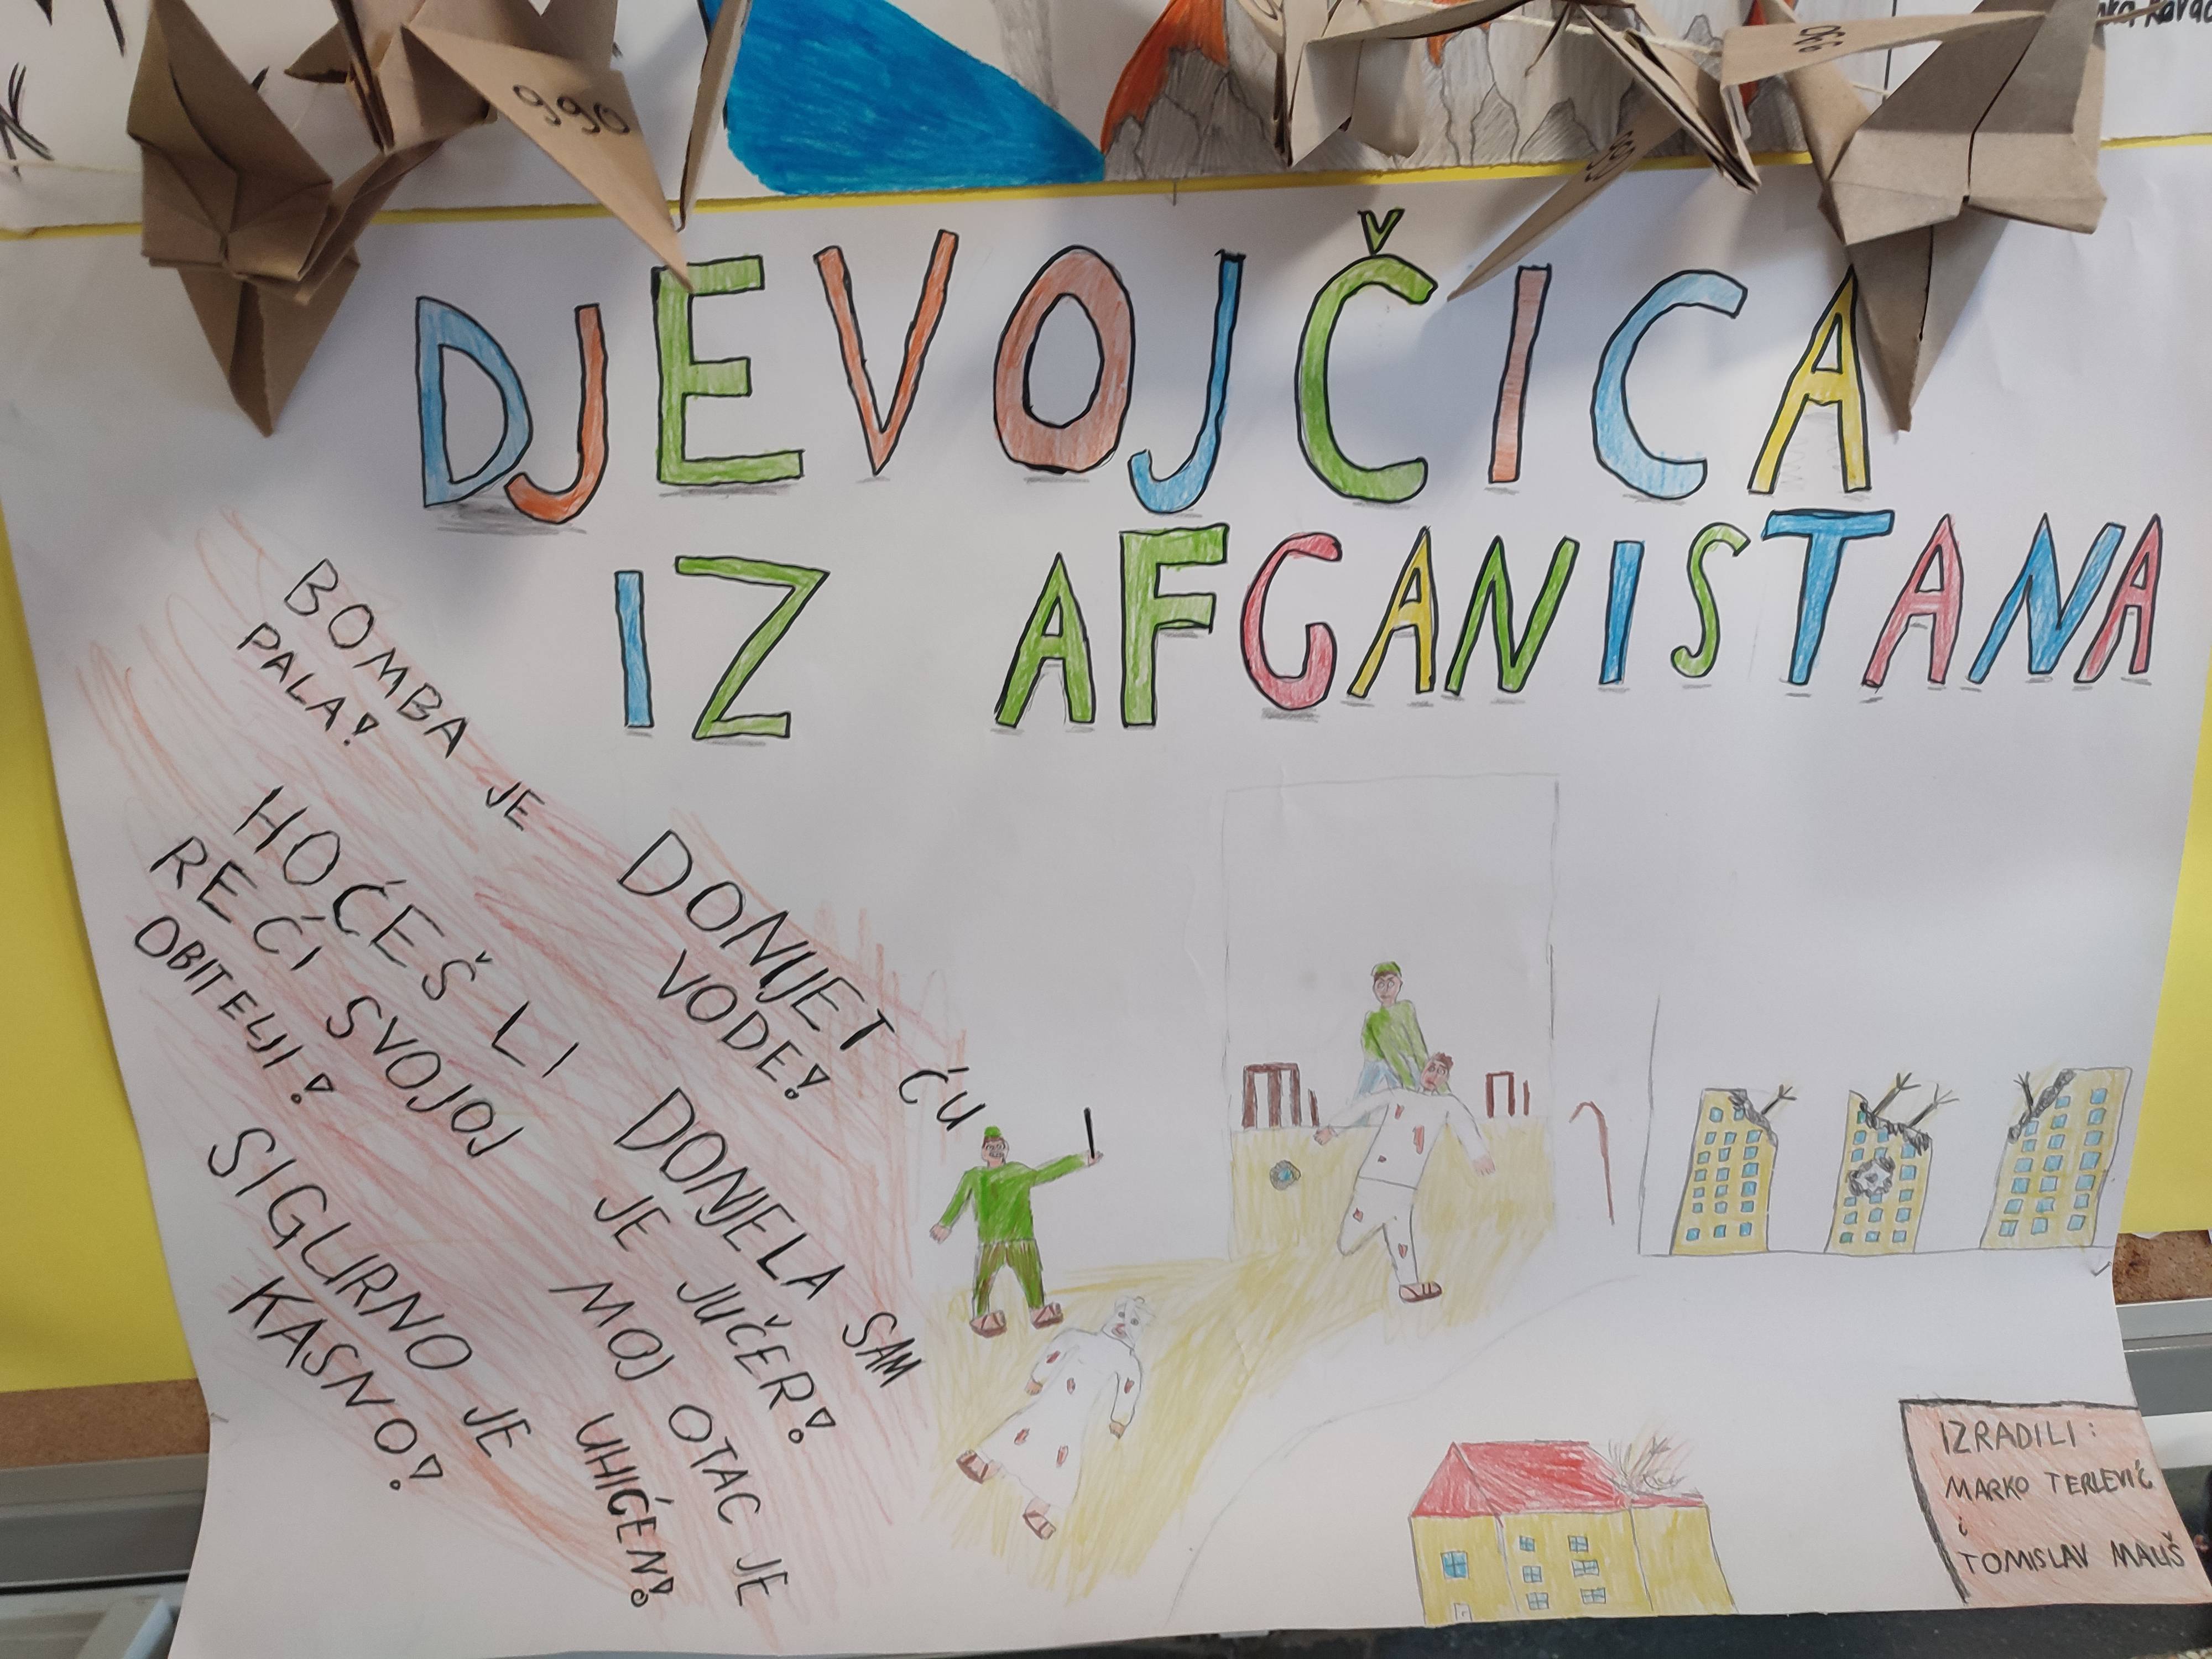 990
DJEVOJČICA
IZ AFGANISTANA
BOMBA JE
PALA!
DONIJET ĆU
VODE!
HOĆEŠ LI
REĆI SVOJOJ
OBITELJI!
DONJELA SAM
JE JUČER!
MOJ OTAC JE
UHIĆEN!
SIGURNO JE
KASNO!
IZRADILI:
MARKO TERLEVIĆ
i
TOMISLAV MALIŠ